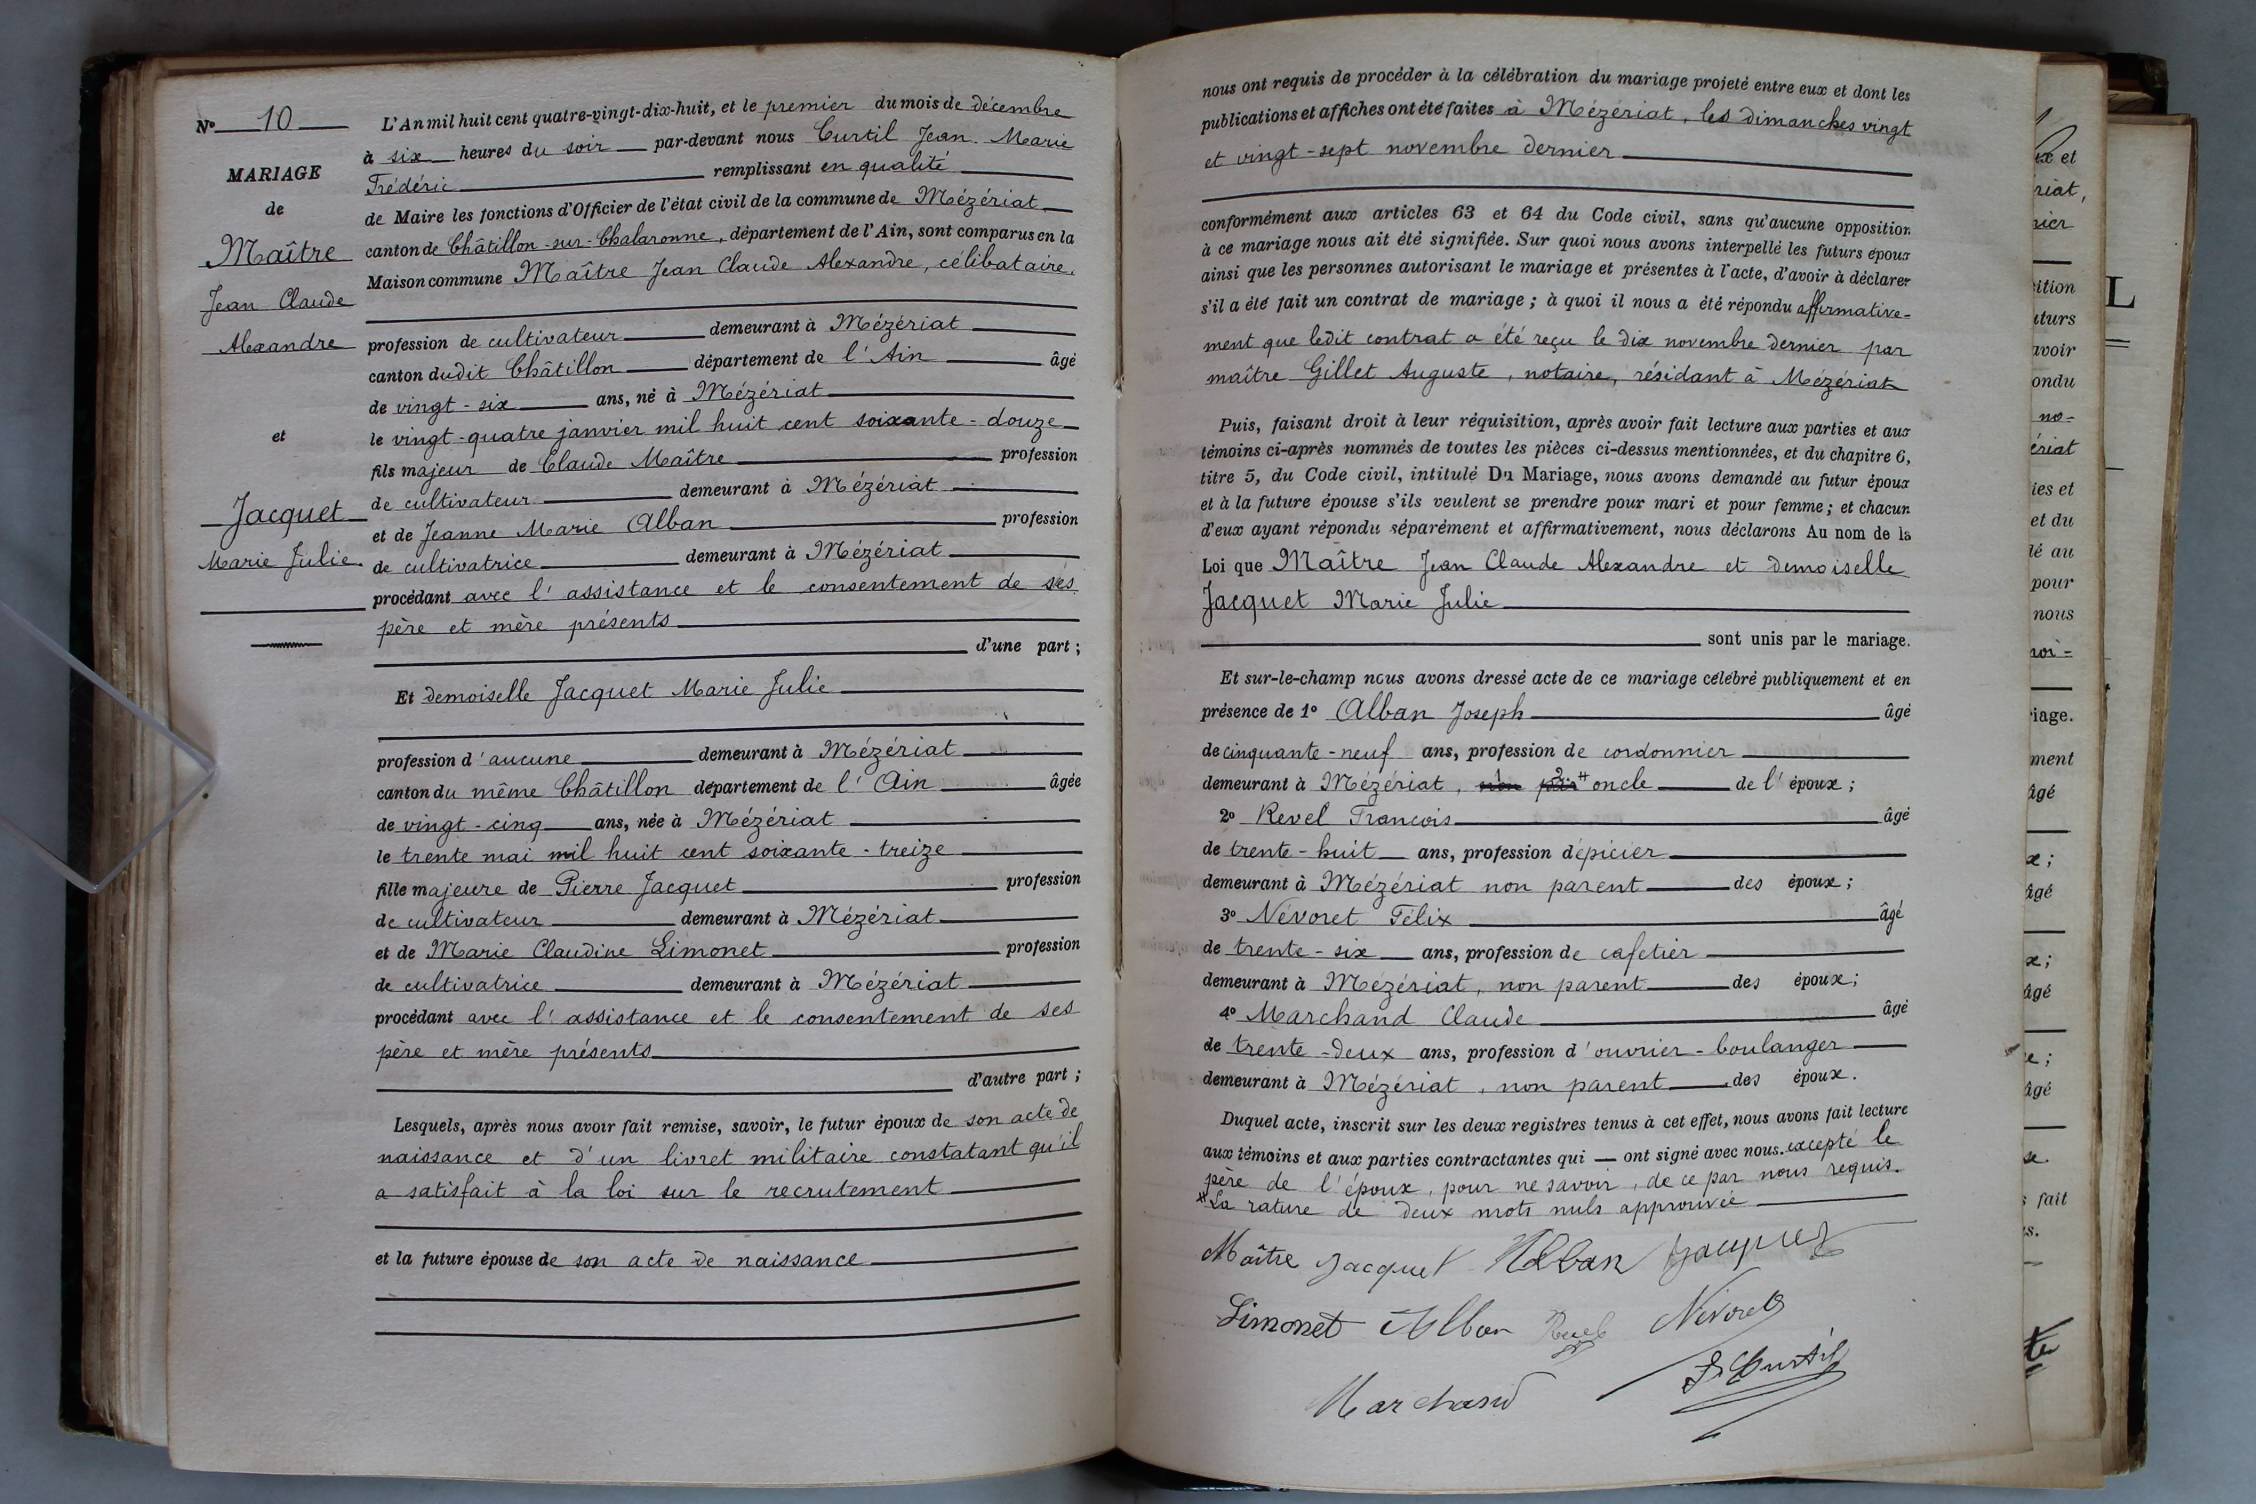 N° 10
MARIAGE
de
Maître
Jean Claude
Alexandre
et
Jacquet
Marie Julie.
L'An mil huit cent quatre-vingt-dix-huit, et le premier du mois de décembre
à six heures du soir par-devant nous Curtil Jean Marie
Frédéric remplissant en qualité
de Maire les fonctions d'Officier de l'état civil de la commune de Mézériat
canton de Châtillon-sur-Chalaronne, département de l'Ain, sont comparus en la
Maison commune Maître Jean Claude Alexandre, célibataire,
profession de cultivateur demeurant à Mézériat
canton dudit Châtillon département de l'Ain âgé
de vingt-six ans, né à Mézériat
le vingt-quatre janvier mil huit cent soixante-douze
fils majeur de Claude Maître profession
de cultivateur demeurant à Mézériat
et de Jeanne Marie Alban profession
de cultivatrice demeurant à Mézériat
procédant avec l'assistance et le consentement de ses
père et mère présents
d'une part ;
Et demoiselle Jacquet Marie Julie
profession d'aucune demeurant à Mézériat
canton du même Châtillon département de l'Ain âgée
de vingt-cinq ans, née à Mézériat
le trente mai mil huit cent soixante-treize
fille majeure de Pierre Jacquet profession
de cultivateur demeurant à Mézériat
et de Marie Claudine Limonet profession
de cultivatrice demeurant à Mézériat
procédant avec l'assistance et le consentement de ses
père et mère présents
d'autre part ;
Lesquels, après nous avoir fait remise, savoir, le futur époux de son acte de
naissance et d'un livret militaire constatant qu'il
a satisfait à la loi sur le recrutement
et la future épouse de son acte de naissance
nous ont requis de procéder à la célébration du mariage projeté entre eux et dont les
publications et affiches ont été faites à Mézériat, les dimanches vingt
et vingt-sept novembre dernier
conformément aux articles 63 et 64 du Code civil, sans qu'aucune opposition
à ce mariage nous ait été signifiée. Sur quoi nous avons interpellé les futurs époux
ainsi que les personnes autorisant le mariage et présentes à l'acte, d'avoir à déclarer
s'il a été fait un contrat de mariage ; à quoi il nous a été répondu affirmative-
ment que ledit contrat a été reçu le dix novembre dernier par
maître Gillet Auguste, notaire, résidant à Mézériat
Puis, faisant droit à leur réquisition, après avoir fait lecture aux parties et aux
témoins ci-après nommés de toutes les pièces ci-dessus mentionnées, et du chapitre 6,
titre 5, du Code civil, intitulé Du Mariage, nous avons demandé au futur époux
et à la future épouse s'ils veulent se prendre pour mari et pour femme ; et chacun
d'eux ayant répondu séparément et affirmativement, nous déclarons Au nom de la
Loi que Maître Jean Claude Alexandre et demoiselle
Jacquet Marie Julie
sont unis par le mariage.
Et sur-le-champ nous avons dressé acte de ce mariage célébré publiquement et en
présence de 1° Alban Joseph âgé
de cinquante-neuf ans, profession de cordonnier
demeurant à Mézériat, # oncle de l'époux ;
2° Revel François âgé
de trente-huit ans, profession d'épicier
demeurant à Mézériat non parent des époux ;
3° Névoret Félix âgé
de trente-six ans, profession de cafetier
demeurant à Mézériat, non parent des époux ;
4° Marchand Claude âgé
de trente-deux ans, profession d'ouvrier-boulanger
demeurant à Mézériat, non parent des époux.
Duquel acte, inscrit sur les deux registres tenus à cet effet, nous avons fait lecture
aux témoins et aux parties contractantes qui — ont signé avec nous. excepté le
père de l'époux, pour ne savoir, de ce par nous requis.
# La rature de deux mots nuls approuvée
Maître Jacquet Alban Jacquet
Limonet Alban Revel Névoret
Marchand F. Curtil